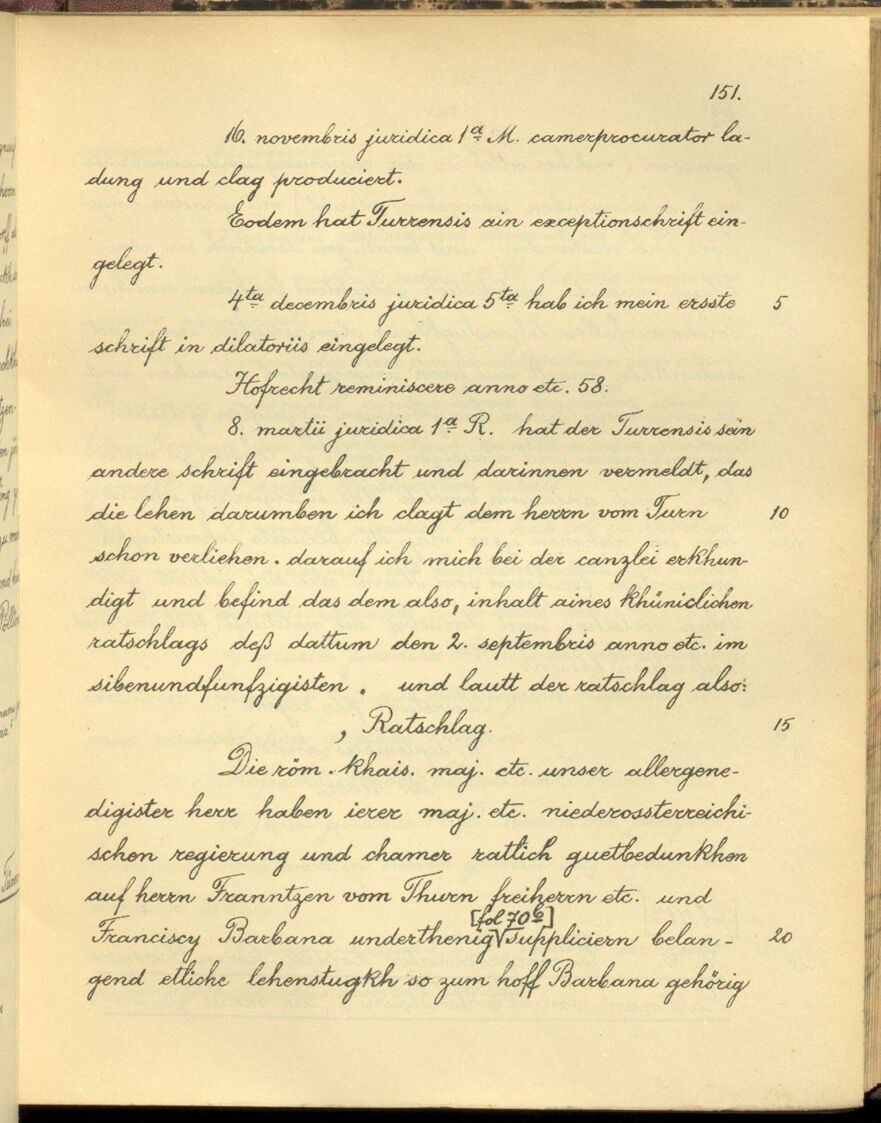 151.
16. novembris juridica 1ª M. camerprocurator la-
dung und clag produciert.
Eodem hat Turrensis ain exceptionschrift ein-
gelegt.
4ta decembris juridica 5ta hab ich mein ersste 5
schrift in dilatoriis eingelegt.
Hofrecht reminiscere anno etc. 58.
8. martii juridica 1ª R. hat der Turrensis sein
andere schrift eingebracht und darinnen vermeldt, das
die lehen darumben ich clagt dem herrn vom Turn 10
schon verliehen. darauf ich mich bei der canzlei erkhun-
digt und befind das dem also, inhalt aines khüniclichen
ratschlags deß dattum den 2. septembris anno etc. im
sibenundfunfzigisten. und lautt der ratschlag also:
, Ratschlag. 15
Die röm. khais. maj. etc. unser allergene-
digister herr haben ierer maj. etc. niederossterreichi-
schen regierung und chamer ratlich guetbedunkhen
auf herrn Franntzen vom Thurn freiherrn etc. und
[fol 70b]
Franciscy Barbana underthenig suppliciern belan- 20
gend etliche lehenstugkh so zum hoff Barbana gehörig